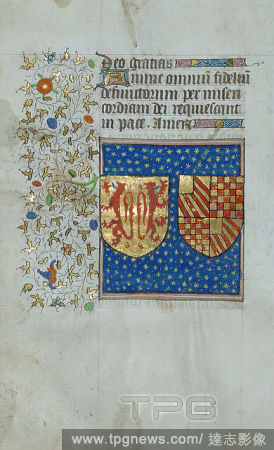 Deo gratias
Anime omnium fidelium
defunctorum per miseri
cordiam dei requiescant
in pace. Amen
TPG
www.tpgnews.com/達志影像